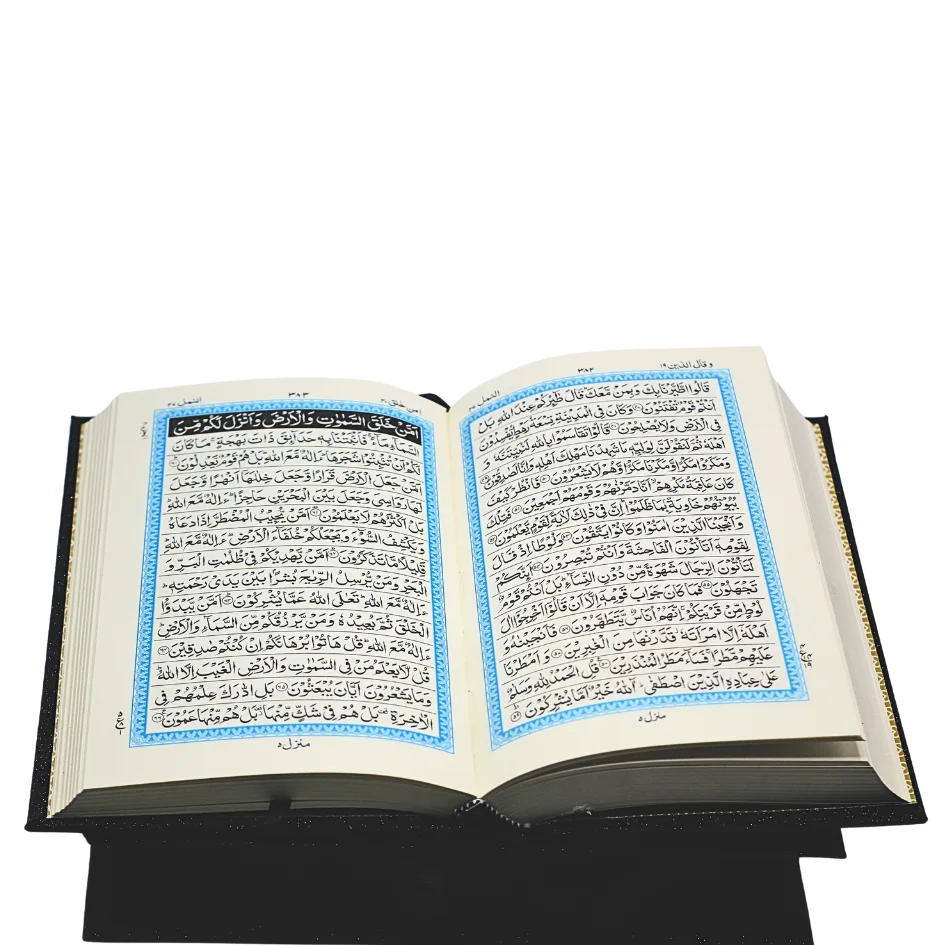 وقال الذين ١٩
٣٨٢
النمل ٢٧
قَالُوا اطَّيَّرْنَا بِكَ وَبِمَنْ مَّعَكَ قَالَ طٰٓئِرُكُمْ عِنْدَ اللهِ بَلْ
اَنْتُمْ قَوْمٌ تُفْتَنُوْنَ ﴿٤٧﴾ وَكَانَ فِي الْمَدِيْنَةِ تِسْعَةُ رَهْطٍ يُّفْسِدُوْنَ
فِي الْاَرْضِ وَلَا يُصْلِحُوْنَ ﴿٤٨﴾ قَالُوْا تَقَاسَمُوْا بِاللهِ لَنُبَيِّتَنَّهٗ وَ
اَهْلَهٗ ثُمَّ لَنَقُوْلَنَّ لِوَلِيِّهٖ مَا شَهِدْنَا مَهْلِكَ اَهْلِهٖ وَاِنَّا لَصٰدِقُوْنَ ﴿٤٩﴾
وَمَكَرُوْا مَكْرًا وَّمَكَرْنَا مَكْرًا وَّهُمْ لَا يَشْعُرُوْنَ ﴿٥٠﴾ فَانْظُرْ كَيْفَ
كَانَ عَاقِبَةُ مَكْرِهِمْ اَنَّا دَمَّرْنٰهُمْ وَقَوْمَهُمْ اَجْمَعِيْنَ ﴿٥١﴾ فَتِلْكَ
بُيُوْتُهُمْ خَاوِيَةً بِمَا ظَلَمُوْا اِنَّ فِيْ ذٰلِكَ لَاٰيَةً لِّقَوْمٍ يَّعْلَمُوْنَ ﴿٥٢﴾
وَاَنْجَيْنَا الَّذِيْنَ اٰمَنُوْا وَكَانُوْا يَتَّقُوْنَ ﴿٥٣﴾ وَلُوْطًا اِذْ قَالَ
لِقَوْمِهٖٓ اَتَاْتُوْنَ الْفَاحِشَةَ وَاَنْتُمْ تُبْصِرُوْنَ ﴿٥٤﴾ اَئِنَّكُمْ
لَتَاْتُوْنَ الرِّجَالَ شَهْوَةً مِّنْ دُوْنِ النِّسَآءِ بَلْ اَنْتُمْ قَوْمٌ
تَجْهَلُوْنَ ﴿٥٥﴾ فَمَا كَانَ جَوَابَ قَوْمِهٖٓ اِلَّآ اَنْ قَالُوْٓا اَخْرِجُوْٓا اٰلَ
لُوْطٍ مِّنْ قَرْيَتِكُمْ اِنَّهُمْ اُنَاسٌ يَّتَطَهَّرُوْنَ ﴿٥٦﴾ فَاَنْجَيْنٰهُ وَ
اَهْلَهٗٓ اِلَّا امْرَاَتَهٗ قَدَّرْنٰهَا مِنَ الْغٰبِرِيْنَ ﴿٥٧﴾ وَاَمْطَرْنَا
عَلَيْهِمْ مَّطَرًا فَسَآءَ مَطَرُ الْمُنْذَرِيْنَ ﴿٥٨﴾ قُلِ الْحَمْدُ لِلّٰهِ وَسَلٰمٌ
عَلٰى عِبَادِهِ الَّذِيْنَ اصْطَفٰى آٰللهُ خَيْرٌ اَمَّا يُشْرِكُوْنَ ﴿٥٩﴾
منزل ٥
امن خلق ٢٠
٣٨٣
النمل ٢٧
اَمَّنْ خَلَقَ السَّمٰوٰتِ وَالْاَرْضَ وَاَنْزَلَ لَكُمْ مِّنَ
السَّمَآءِ مَآءً فَاَنْۢبَتْنَا بِهٖ حَدَآئِقَ ذَاتَ بَهْجَةٍ مَا كَانَ
لَكُمْ اَنْ تُنْۢبِتُوْا شَجَرَهَا ءَاِلٰهٌ مَّعَ اللهِ بَلْ هُمْ قَوْمٌ يَّعْدِلُوْنَ ﴿٦٠﴾
اَمَّنْ جَعَلَ الْاَرْضَ قَرَارًا وَّجَعَلَ خِلٰلَهَآ اَنْهٰرًا وَّجَعَلَ
لَهَا رَوَاسِيَ وَجَعَلَ بَيْنَ الْبَحْرَيْنِ حَاجِزًا ءَاِلٰهٌ مَّعَ اللهِ
بَلْ اَكْثَرُهُمْ لَا يَعْلَمُوْنَ ﴿٦١﴾ اَمَّنْ يُّجِيْبُ الْمُضْطَرَّ اِذَا دَعَاهُ
وَيَكْشِفُ السُّوْٓءَ وَيَجْعَلُكُمْ خُلَفَآءَ الْاَرْضِ ءَاِلٰهٌ مَّعَ اللهِ
قَلِيْلًا مَّا تَذَكَّرُوْنَ ﴿٦٢﴾ اَمَّنْ يَّهْدِيْكُمْ فِيْ ظُلُمٰتِ الْبَرِّ وَ
الْبَحْرِ وَمَنْ يُّرْسِلُ الرِّيٰحَ بُشْرًۢا بَيْنَ يَدَيْ رَحْمَتِهٖ
ءَاِلٰهٌ مَّعَ اللهِ تَعٰلَى اللهُ عَمَّا يُشْرِكُوْنَ ﴿٦٣﴾ اَمَّنْ يَّبْدَؤُا
الْخَلْقَ ثُمَّ يُعِيْدُهٗ وَمَنْ يَّرْزُقُكُمْ مِّنَ السَّمَآءِ وَالْاَرْضِ
ءَاِلٰهٌ مَّعَ اللهِ قُلْ هَاتُوْا بُرْهَانَكُمْ اِنْ كُنْتُمْ صٰدِقِيْنَ ﴿٦٤﴾
قُلْ لَّا يَعْلَمُ مَنْ فِي السَّمٰوٰتِ وَالْاَرْضِ الْغَيْبَ اِلَّا اللهُ
وَمَا يَشْعُرُوْنَ اَيَّانَ يُبْعَثُوْنَ ﴿٦٥﴾ بَلِ ادّٰرَكَ عِلْمُهُمْ فِي
الْاٰخِرَةِ بَلْ هُمْ فِيْ شَكٍّ مِّنْهَا بَلْ هُمْ مِّنْهَا عَمُوْنَ ﴿٦٦﴾
منزل ٥